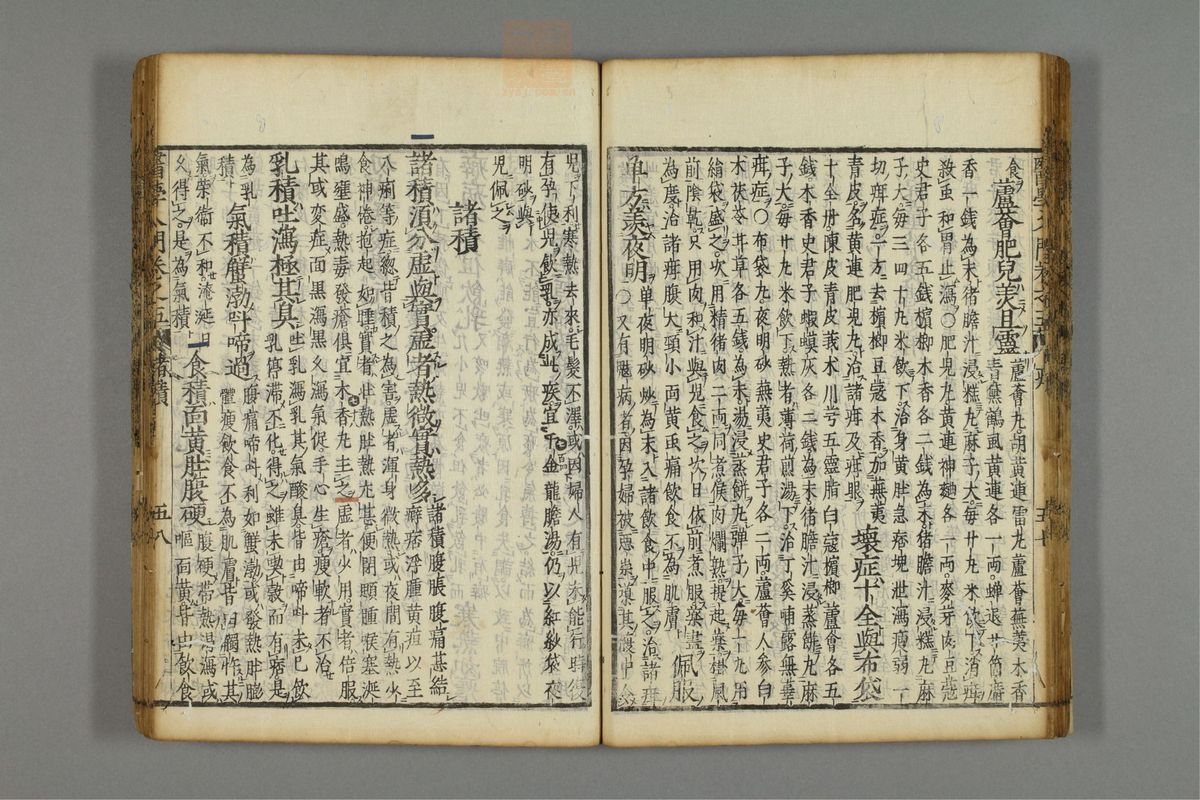 食 蘆薈肥兒美且靈 蘆薈丸胡黄連雷丸蘆薈蕪荑木香
青黛鶴虱黄連各一兩蟬退廿箇麝
香一錢為末猪膽汁浸糕丸麻子大每廿丸米飲下消疳
殺虫和胃止瀉○肥児丸黄連神麯各一兩麥芽肉豆蔻
史君子各五錢檳榔木香各二錢為末猪膽汁浸糕丸麻
子大每三四十丸米飲下治身黄肚急痞塊泄瀉瘦弱一
切疳症一方去檳榔豆蔻木香加蕪荑
壞症十全與布袋
青皮名黄連肥児丸治諸疳及疳眼
十全丹陳皮青皮莪朮川芎五靈脂白蔻檳榔蘆薈各五
錢木香史君子蝦蟆灰各二錢為末猪膽汁浸蒸餅丸麻
子大每廿丸米飲下熱者薄荷煎湯下治丁奚哺露無辜
疳症○布袋丸夜明砂蕪荑史君子各二兩蘆薈人參白
朮茯苓甘草各五錢為末湯浸蒸餅丸彈子大每一丸用
絹袋盛之次用精猪肉二両同煮候肉爛熟提起藥掛風
前陰乾只用肉和汁與児食之次日依前煮服藥盡
為度治諸疳腹大頸小面黄虫痛飲食不為肌膚 佩服
單方羙夜明 单夜明砂炒為末入諸飲食中服之治諸疳
○又有病者因孕婦被
児下利寒熱去來毛髮不澤或因婦人有児未能行時復
有孕使児飲乳亦成此疾宜下金龍膽湯仍以紅紗袋夜
明砂與
児佩之
諸積
諸積湏分虚與實虛者熱微實熱多 諸積腹脹腹痛甚結
癖痞浮腫黄疸以至
八痢等症総皆積之為害虛者渾身微熱或夜間有熱少
食神倦抱起如睡實者壯熱肚熱尤甚便閉頭腫喉塞涎
鳴壅盛熱毒發瘡俱宜木香丸主之虛者少用實者倍服
其或変症面黒瀉黒久瀉氣促手心生瘡瘦軟者不治
乳積吐瀉極其臭 吐乳瀉乳其氣酸臭皆由啼呌未已飲
乳停滯不化得之雖未喫穀而有病是
為乳
積 氣積蟹渤呌啼過 腹痛啼呌利如蟹渤或發熱肚膨
體瘦飲食不為肌膚皆因觸忤其
氣榮衛不和淹延日
久得之是為氣積 食積面黄肚腹硬 腹梗帶熱渴瀉或
嘔面黄皆由飲食
醫學入門卷之五 諸積 五八